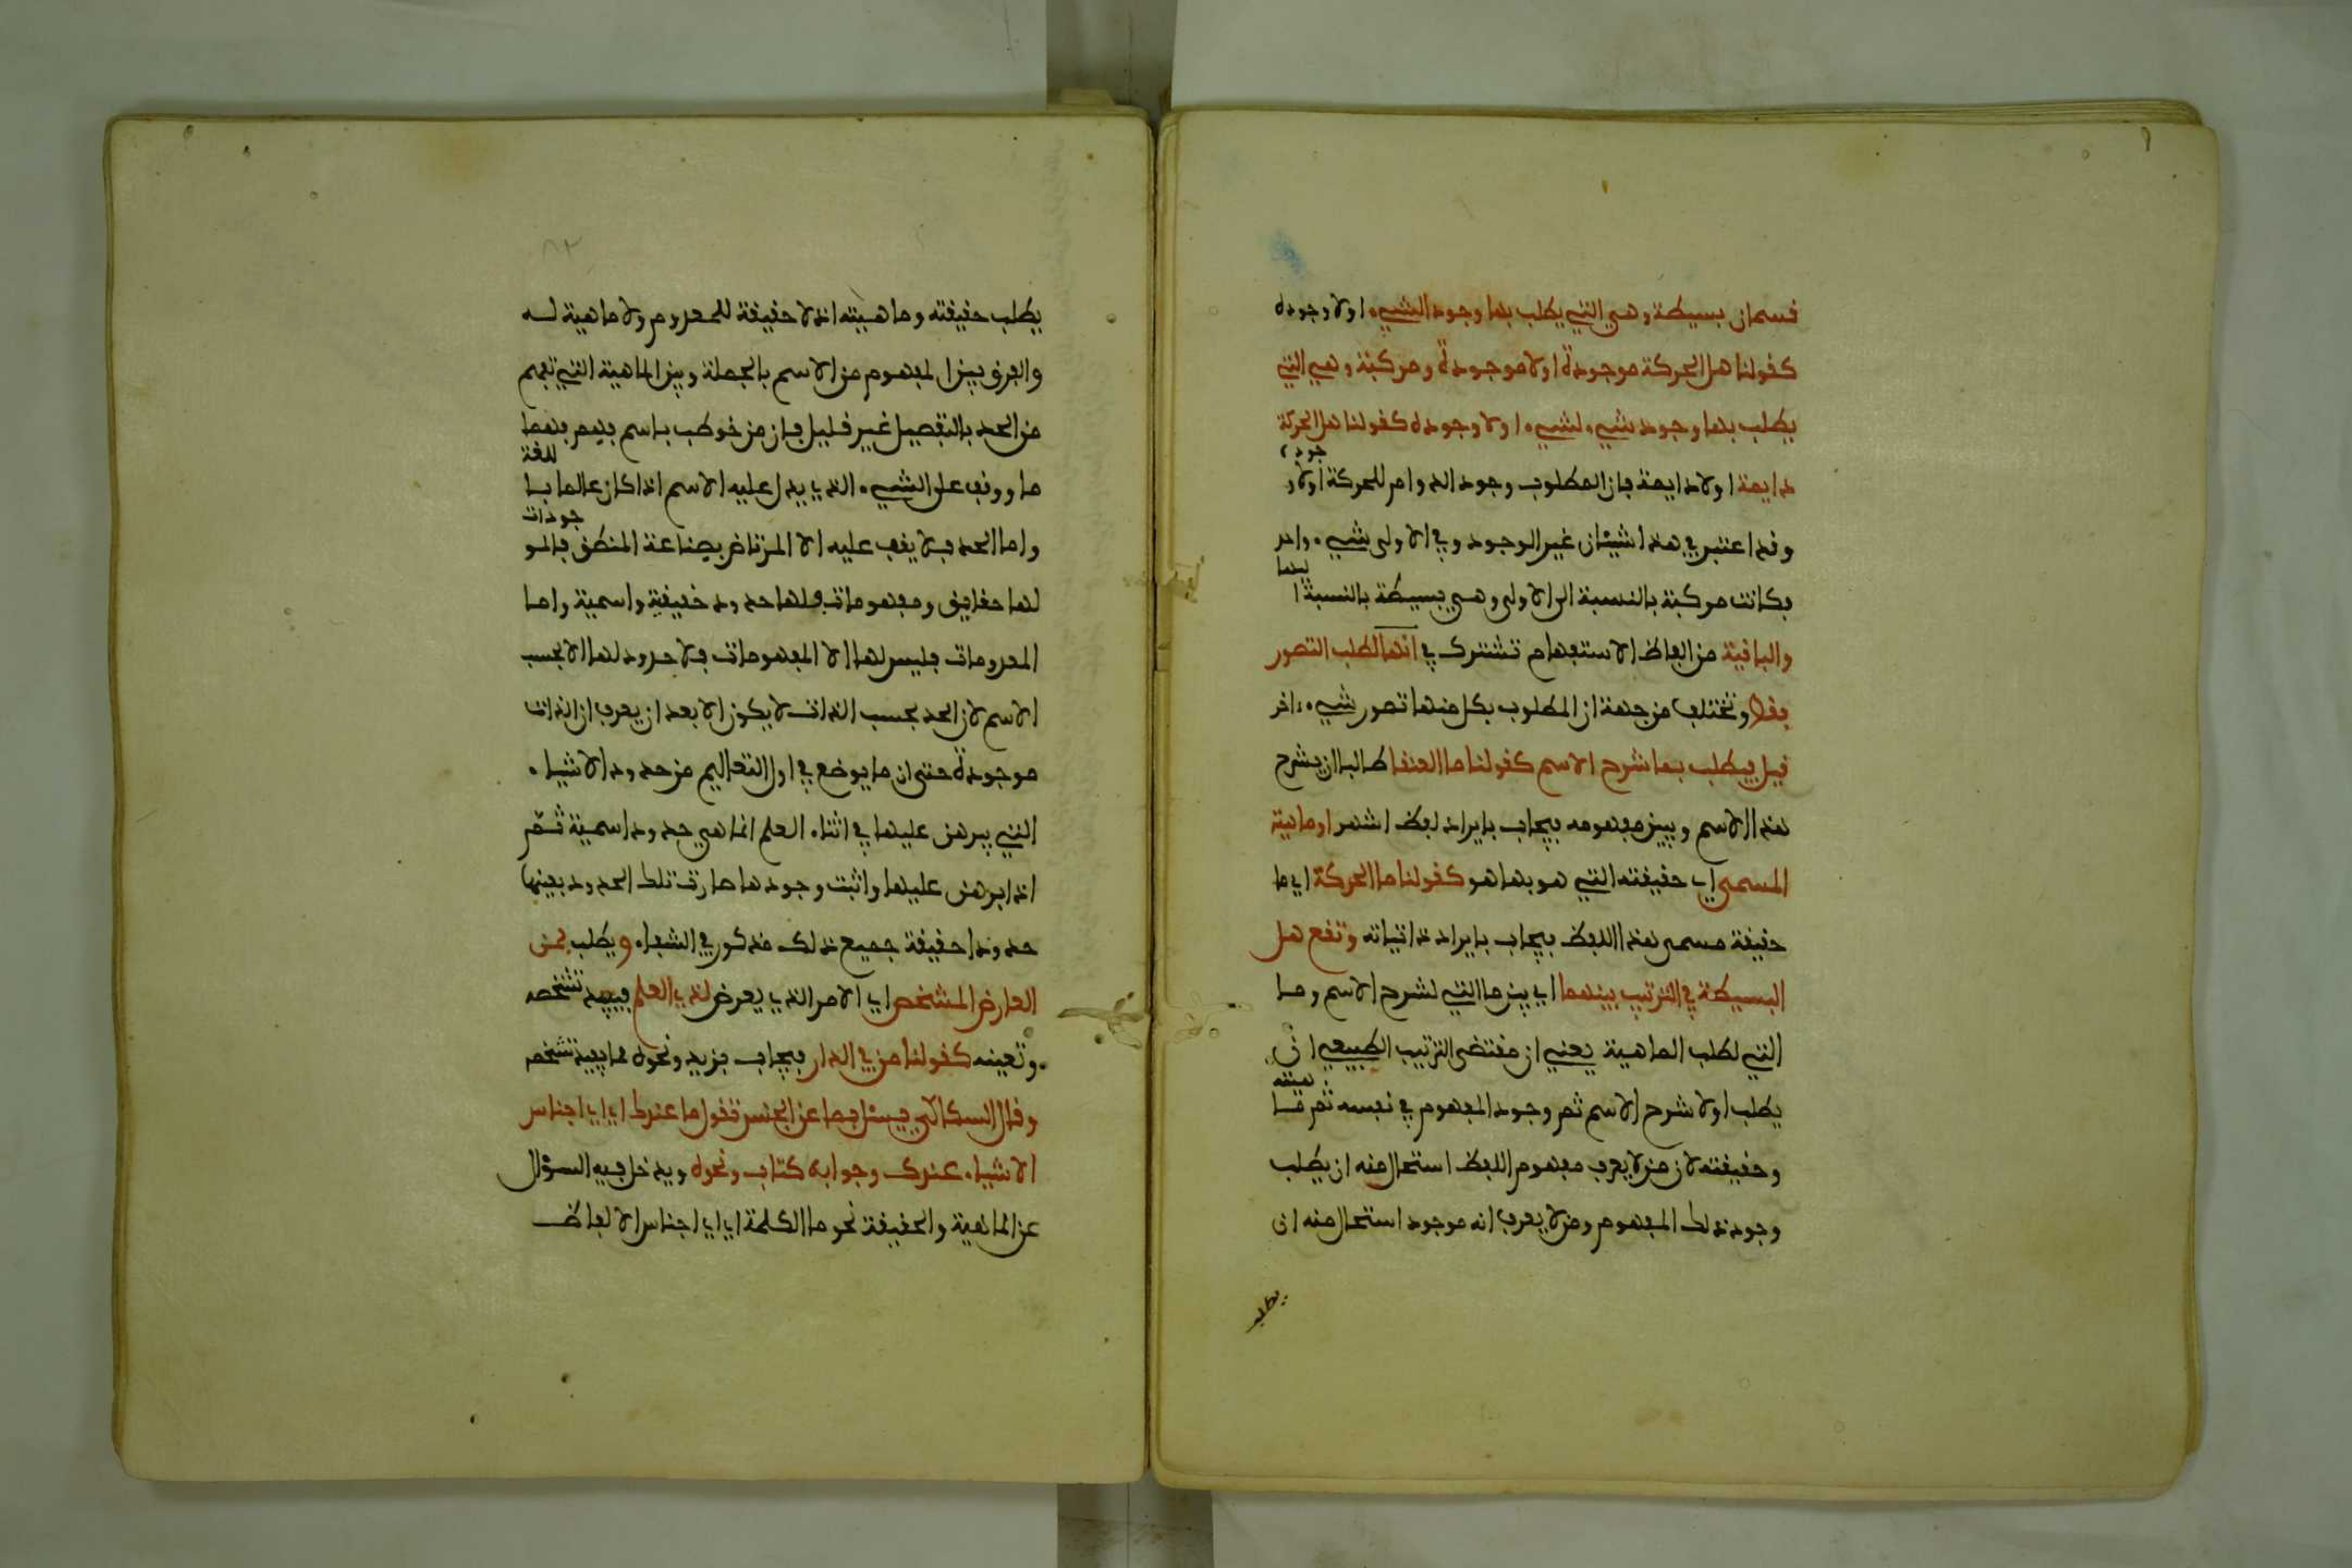 قسمان بسيطة وهي التي يطلب بها وجود الشيء اولا وجوده
كقولنا هل الحركة موجودة اولا موجودة ومركبة وهي التي
يطلب بها وجود شيء لشيء اولا وجوده كقولنا هل الحركة
دايمة اولا دايمة فان المطلوب وجود الدوام للحركة اولا وجوده
وقد اعتبر في هذا شيئان غير الوجود وفي الاولى شيء واحد
فكانت مركبة بالنسبة الى الاولى وهي بسيطة بالنسبة اليها
والباقية من الفاظ الاستفهام تشترك في انها لطلب التصور
فقط وتختلف من جهة ان المطلوب بكل منها تصور شيء ءاخر
قيل فيطلب بما شرح الاسم كقولنا ما العنقا طالبا ان يشرح
هذا الاسم ويبين مفهومه فيجاب بايراد لفظ اشهر او ماهية
المسمى اي حقيقته التي هو بها هو كقولنا ما الحركة اي ما
حقيقة مسمى هذا اللفظ فيجاب بايراد ذاتياته وتقع هل
البسيطة في الترتيب بينهما اي بين ما التي لشرح الاسم وما
التي لطلب الماهية يعني ان مقتضى الترتيب الطبيعي ان
يطلب اولا شرح الاسم ثم وجود المفهوم في نفسه ثم ماهيته
وحقيقته لان من لا يعرف مفهوم اللفظ استحال منه ان يطلب
وجود ذلك المفهوم ومن لا يعرف انه موجود استحال منه ان
يطلب
يطلب حقيقته وماهيته اذ لا حقيقة للمعدوم ولا ماهية له
والفرق بين المفهوم من الاسم بالجملة وبين الماهية التي تفهم
من الحد بالتفصيل غير قليل فان من خوطب باسم فهم فهما
ما ووقف على الشيء الذي يدل عليه الاسم اذا كان عالما باللغة
واما الحد فلا يقف عليه الا المرتاض بصناعة المنطق فالموجودات
لها حقايق ومفهومات فلها حدود حقيقية واسمية واما
المعدومات فليس لها الا المفهومات فلا حدود لها الا بحسب
الاسم لان الحد بحسب الذات لا يكون الا بعد ان يعرف ان الذات
موجودة حتى ان ما يوضع في اول التعاليم من حدود الاشياء
التي يبرهن عليها في اثناء العلم انما هي حدود اسمية ثم
اذا برهن عليها واثبت وجودها صارت تلك الحدود بعينها
حدودا حقيقة جميع ذلك مذكور في الشفاء ويطلب بمن
العارض المشخص اي الامر الذي يعرض لذي العلم فيفيد تشخصه
وتعينه كقولنا من في الدار فيجاب بزيد ونحوه مما يفيد تشخصه
وقال السكاكي يسئل بما عن الجنس تقول ما عندك اي اي اجناس
الاشياء عندك وجوابه كتاب ونحوه ويدخل فيه السؤال
عن الماهية والحقيقة نحو ما الكلمة اي اي اجناس الالفاظ